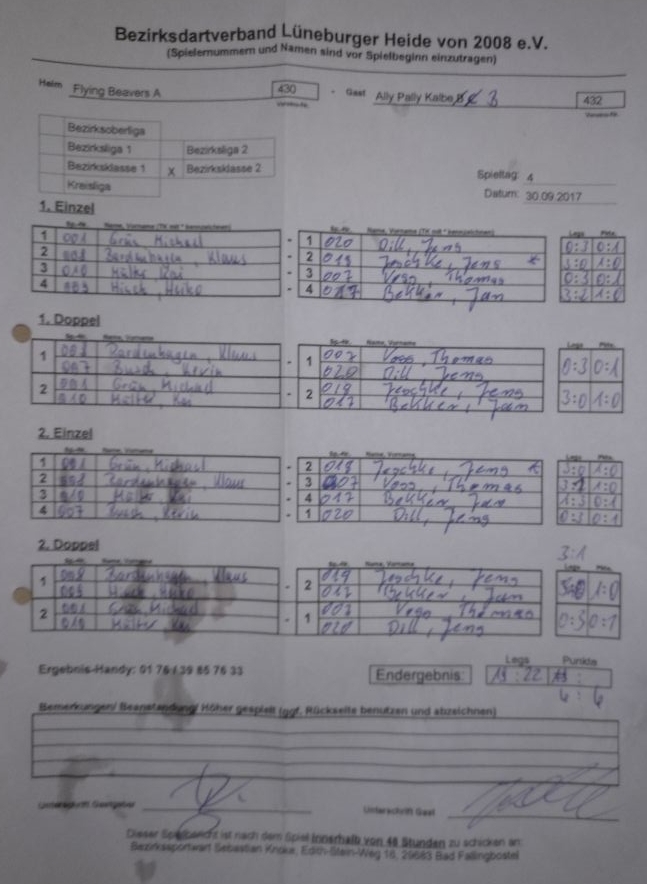 Bezirksdartverband Lüneburger Heide von 2008 e.V.
(Spielernummern und Namen sind vor Spielbeginn einzutragen)
Heim Flying Beavers A 430 - Gast Ally Pally Kalbe B 432
Vereins-Nr. Vereins-Nr.
Bezirksoberliga
Bezirksliga 1 Bezirksliga 2
Bezirksklasse 1 X Bezirksklasse 2
Kreisliga
Spieltag: 4
Datum: 30.09.2017
1. Einzel
Sp.-Nr. Name, Vorname (TK mit * kennzeichnen) Sp.-Nr. Name, Vorname (TK mit * kennzeichnen) Legs Pkte.
1 001 Grün, Michael - 1 020 Dill, Jens 0:3 0:1
2 008 Bardenhagen, Klaus - 2 019 Jeschke, Jens * 3:0 1:0
3 010 Kai - 3 007 Voss, Thomas 0:3 0:1
4 Heiko - 4 017 Bekker, Jan 3:2 1:0
1. Doppel
Sp.-Nr. Name, Vorname Sp.-Nr. Name, Vorname Legs Pkte.
1 008 Bardenhagen, Klaus - 1 007 Voss, Thomas 0:3 0:1
007 Busch, Kevin 020 Dill, Jens
2 001 Grün, Michael - 2 019 Jeschke, Jens 3:0 1:0
010 Kai 017 Bekker, Jan
2. Einzel
Sp.-Nr. Name, Vorname Sp.-Nr. Name, Vorname Legs Pkte.
1 001 Grün, Michael - 2 019 Jeschke, Jens * 3:0 1:0
2 008 Bardenhagen, Klaus - 3 007 Voss, Thomas 1:0
3 010 Kai - 4 017 Bekker, Jan 1:3 0:1
4 007 Busch, Kevin - 1 020 Dill, Jens 0:3 0:1
2. Doppel
3:1
Sp.-Nr. Name, Vorname Sp.-Nr. Name, Vorname Legs Pkte.
1 008 Bardenhagen, Klaus - 2 019 Jeschke, Jens 1:0
Heiko 017 Bekker, Jan
2 001 Grün, Michael - 1 007 Voss, Thomas 0:3 0:1
010 Kai 020 Dill, Jens
Legs Punkte
Ergebnis-Handy: 01 76 / 39 85 76 33 Endergebnis: 19 : 22
6 : 6
Bemerkungen/ Beanstandung/ Höher gespielt (ggf. Rückseite benutzen und abzeichnen)
Unterschrift Gastgeber Unterschrift Gast
Dieser Spielbericht ist nach dem Spiel innerhalb von 48 Stunden zu schicken an:
Bezirkssportwart Sebastian Knoke, Edith-Stein-Weg 16, 29683 Bad Fallingbostel